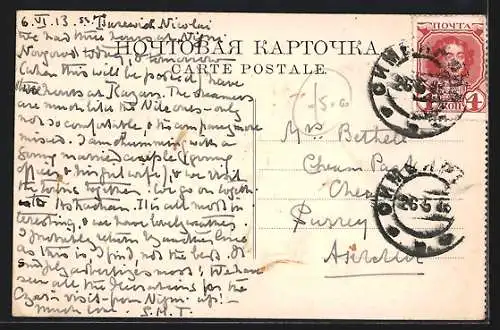 6.VI.13. ss Tsarewich Nicolai
We had three hours at Nijni
Novgorod today, & tomorrow
(when this will be posted) have
hours at Kazan. The steamers
are much like the Nile ones - only
not so comfortable, & the company more
mixed. I am chumming with a
young married couple (young
officer & his girl wife), & we visit
the towns together. We go on together
to It is all most in-
teresting, & we have lovely weather.
I probably return by another line
as this is, I find, not the best. It
simply advertizes most! We have
seen all the decorations for the
Czar's visit - from Nijni up! -
Much love. S.M.T.
ПОЧТОВАЯ КАРТОЧКА.
CARTE POSTALE.
Mrs Bethell
Cheam Park
Cheam
Surrey
Англия
ПОЧТА
4 КОП 4
СИМБ
26 5
СИМБ
26 5